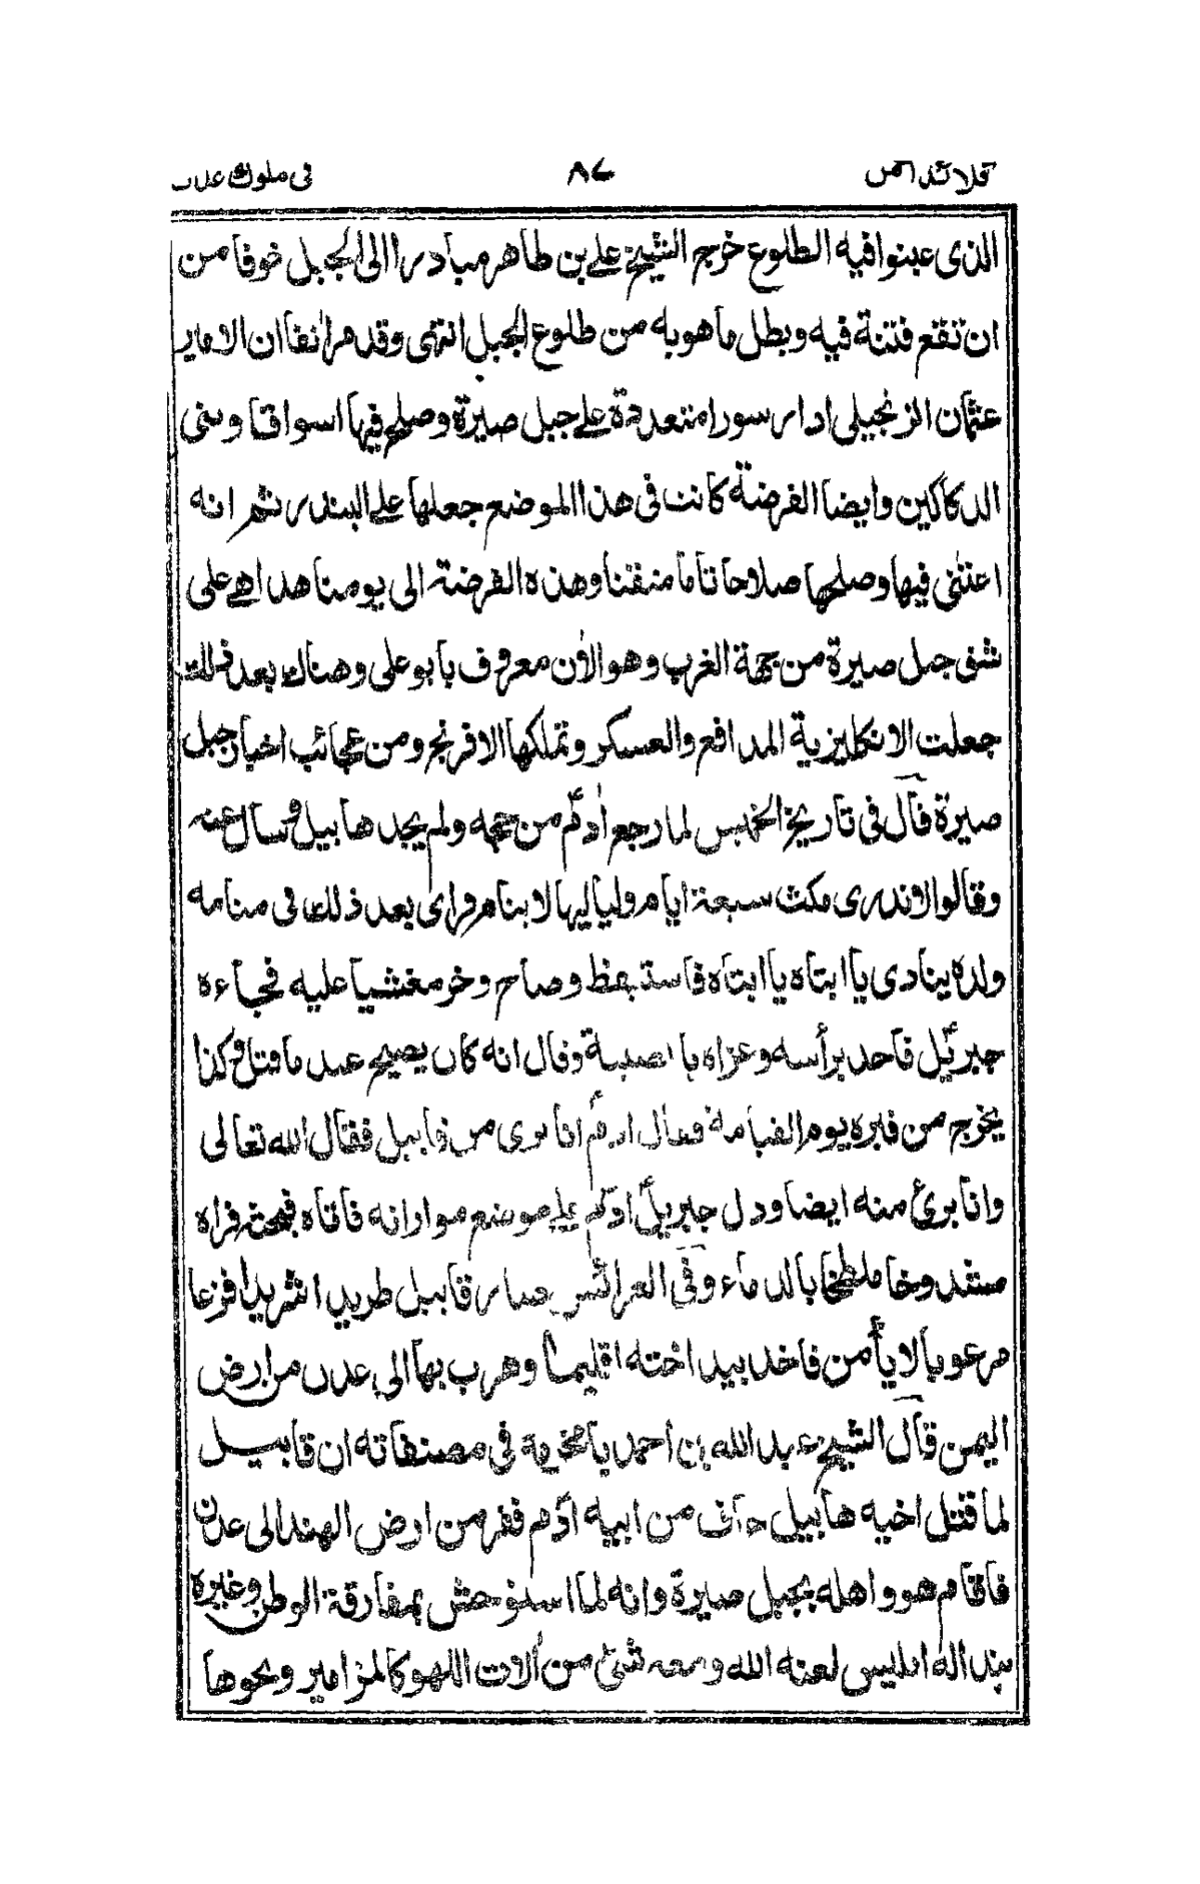 قلائد الجمن ٨٧ في ملوك عدن
الذي عينوا فيه الطلوع خرج الشيخ علي بن طاهر مبادرا الى الجبل خوفا من
ان تقع فتنة فيه وبطل ما هو به من طلوع الجبل انتهى وقد مر انفا ان الامير
عثمان الزنجيلي ادار سورا متعددة على جبل صيرة وصلح فيها اسواقا وبنى
الدكاكين وايضا الفرضة كانت في هذا الموضع جعلها على البندر ثم انه
اعتنى فيها وصلحها صلاحا تاما متقنا وهذه الفرضة الى يومنا هذا هي على
شق جبل صيرة من جهة الغرب وهو الأن معروف بابو علي وهناك بعد ذلك
جعلت الانكليزية المدافع والعسكر وتملكها الافرنج ومن عجائب اخبار جبل
صيرة قال في تاريخ الخميس لما رجع أدم من حجه ولم يجد هابيل وسال عنه
وقالوا لا ندري مكث سبعة ايام ولياليها لا ينام فراى بعد ذلك في منامه
ولده ينادي يا ابتاه يا ابتاه فاستيقظ وصاح وخر مغشيا عليه فجاءه
جبرئيل فاخذ برأسه وعزاه بالمصيبة وقال انه كان يصيح عند ما قتل وكذا
يخرج من قبره يوم القيامة فقال ادم انا بري من قابيل فقال الله تعالى
وانا برئ منه ايضا ودل جبريل ادم على موضع مواراته فاتاه فبحث فراه
مشدوخا ملطخا بالدماء وفي العرائس صار قابيل طريدا شريدا فزعا
مرعوبا لا يأمن فاخذ بيد اخته اقليما وهرب بها الى عدن من ارض
اليمن قال الشيخ عبد الله بن احمد بامخرمة في مصنفاته ان قابيل
لما قتل اخيه هابيل خاف من ابيه أدم ففر من ارض الهند الى عدن
فاقام هو واهله بجبل صيرة وانه لما استوحش بمفارقة الوطن وغيره
بدا له ابليس لعنه الله ومعه شئ من ألات اللهو كالمزامير ونحوها